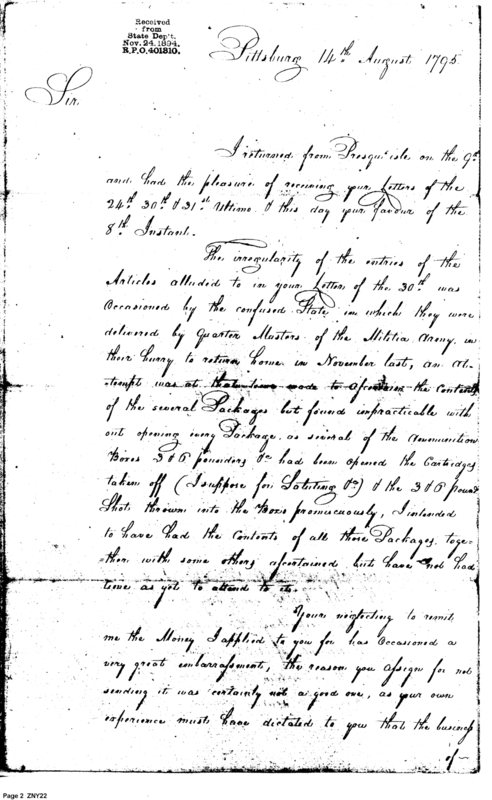 Received
from
State Dep't.
Nov. 24. 1894.
R.P.O. 401310.
Pittsburg 14th August 1795
Sir
I returned from Presqu'isle on the 9th
and had the pleasure of receiving your Letters of the
24th 30th & 31st Ultimo & this day your favour of the
8th Instant.
The irregularity of the entries of the
Articles alluded to in your Letter of the 30th was
Occasioned by the confused State in which they were
delivered by Quarter Masters of the Militia Army in
their hurry to return home in November last, an At-
tempt was at that time made to ascertain the Contents
of the several Packages but found unpracticable with
out opening every Package, as several of the Ammunition
Boxes 3 & 6 pounders &c had been opened the Cartridges
taken off (I suppose for Saluting &c) & the 3 & 6 pound
Shot thrown into the Boxes promiscuously, I intended
to have had the Contents of all those Packages, toge-
ther with some others ascertained but have not had
time as yet to attend to it.
Your neglecting to remit
me the Money I applied to you for has Occasioned a
very great embarrassment, the reason you Assign for not
sending it was certainly not a good one, as your own
experience must have dictated to you that the business
of
Page 2 ZNY22